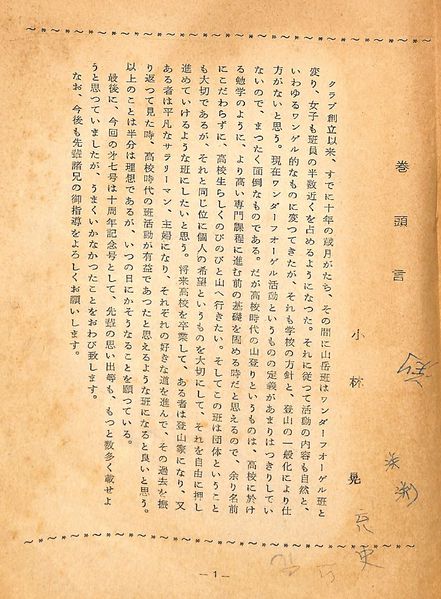 巻頭言
小林 晃
クラブ創立以来、すでに十年の歳月がたち、その間に山岳班はワンダーフオーゲル班と
変り、女子も班員の半数近くを占めるようになつた。それに従つて活動の内容も自然と、
いわゆるワンゲル的なものに変つてきたが、それも学校の方針と、登山の一般化により仕
方がないと思う。現在ワンダーフオーゲル活動というものの定義があまりはつきりしてい
ないので、まつたく面倒なものである。だが高校時代の山登りというものは、高校に於け
る勉学のように、より高い専門課程に進む前の基礎を固める時だと思えるので、余り名前
にこだわらずに、高校生らしくのびのびと山へ行きたい。そしてこの班は団体ということ
も大切であるが、それと同じ位に個人の希望というものを大切にして、それを自由に押し
進めていけるような班にしたいと思う。将来高校を卒業して、ある者は登山家になり、又
ある者は平凡なサラリーマン、主婦になり、それぞれの好きな道を進んで、その過去を振
り返つて見た時、高校時代の班活動が有益であつたと思えるような班になると良いと思う。
以上のことは半分は理想であるが、いつの日にかそうなることを願つている。
最後に、今回の才七号は十周年記念号として、先輩の思い出等も、もつと数多く載せよ
うと思つていましたが、うまくいかなかつたことをおわび致します。
なお、今後も先輩諸兄の御指導をよろしくお願いします。
—1—